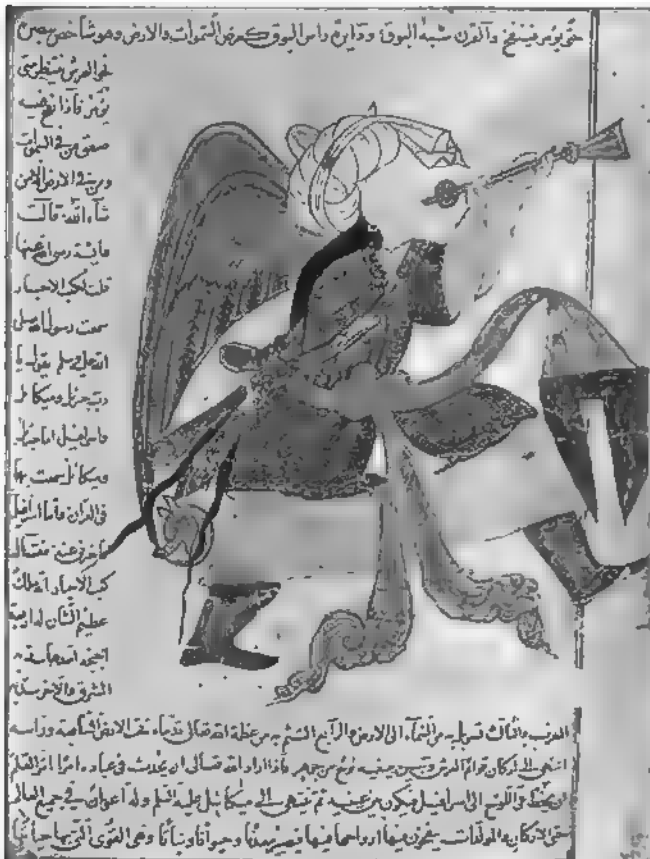 حتى يؤمر فينفخ والقرن شبه البوق ودايرة راس البوق كعرض السموات والارض وهو شاخص ببصره
نحو العرش ينتظر متى
يؤمر فاذا نفخ فيه
صعق من في السموات
ومن في الارض الا من
شآء الله قالت
عائشة رضى الله عنها
قلت لكعب الاحبار
سمعت رسول الله صلى
الله عليه وسلم يقول يا
رب جبرئيل وميكائيل
واسرافيل اما جبرئيل
وميكائيل سمعت بهما
في القران واما اسرافيل
فاخبرني عنه فقال
كعب الاحبار انه ملك
عظيم الشان له اربعة
اجنحة احدها سد به
المشرق والاخر سد به
المغرب والثالث تسربل به من السماء الى الارض والرابع التثم به من عظمة الله تعالى قدماه تحت الارض السابعة وراسه
انتهى الى اركان قوائم العرش وبين عينيه لوح من جوهر فاذا اراد الله تعالى ان يحدث في عباده امرا امر القلم
ان يخط في اللوح الى اسرافيل فيكون بين عينيه ثم ينتهي الى ميكائيل عليه السلم وله اعوان في جميع العالم
حتى الاركان والمولدات ينفخون فيها ارواحها فيها فيصير معدنا وحيوانا ونباتا وهي القوى التي بها حياتها